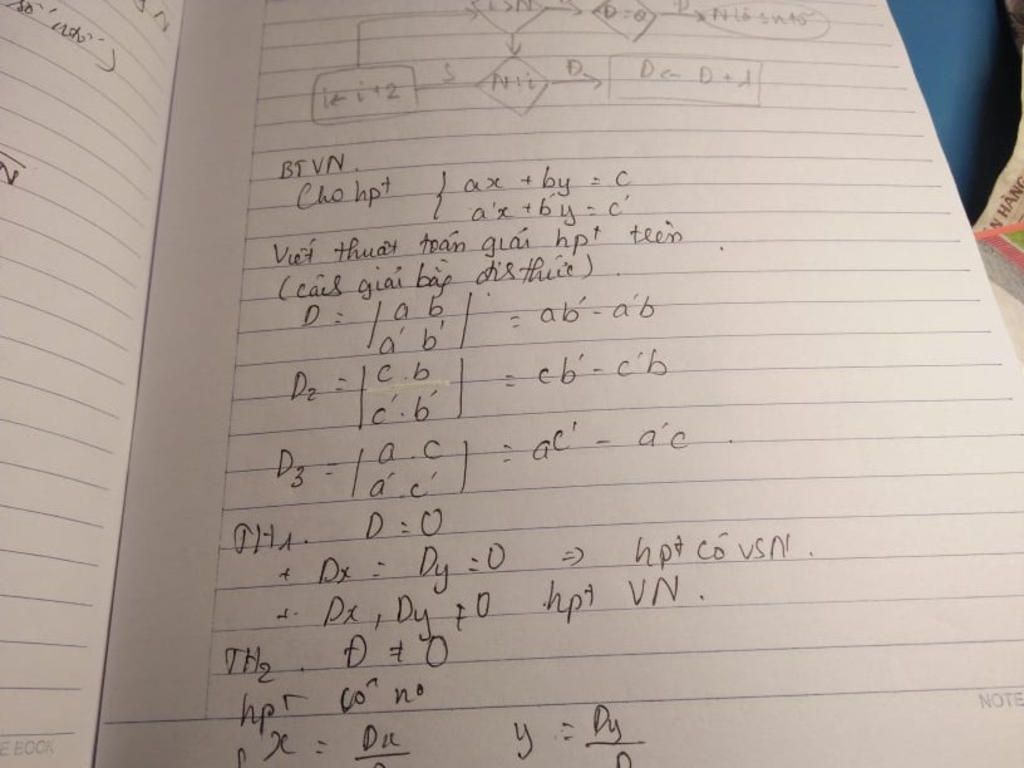 D = 0
N : i
Đ
D ← D + 1
S
i ← i + 2
BTVN.
Cho hpt { ax + by = c
a'x + b'y = c'
Viết thuật toán giải hpt trên
(cách giải bằng định thức)
D = | a b | = ab' - a'b
| a' b' |
D2 = | c . b | = cb' - c'b
| c' . b' |
D3 = | a . c | = ac' - a'c .
| a' . c' |
TH1. D = 0
+ Dx = Dy = 0 ⇒ hpt có VSN .
+ Dx , Dy ≠ 0 hpt VN .
TH2 . D ≠ 0
hpt có n0
x = Dx y = Dy
NOTE
E BOOK
N HÀNG